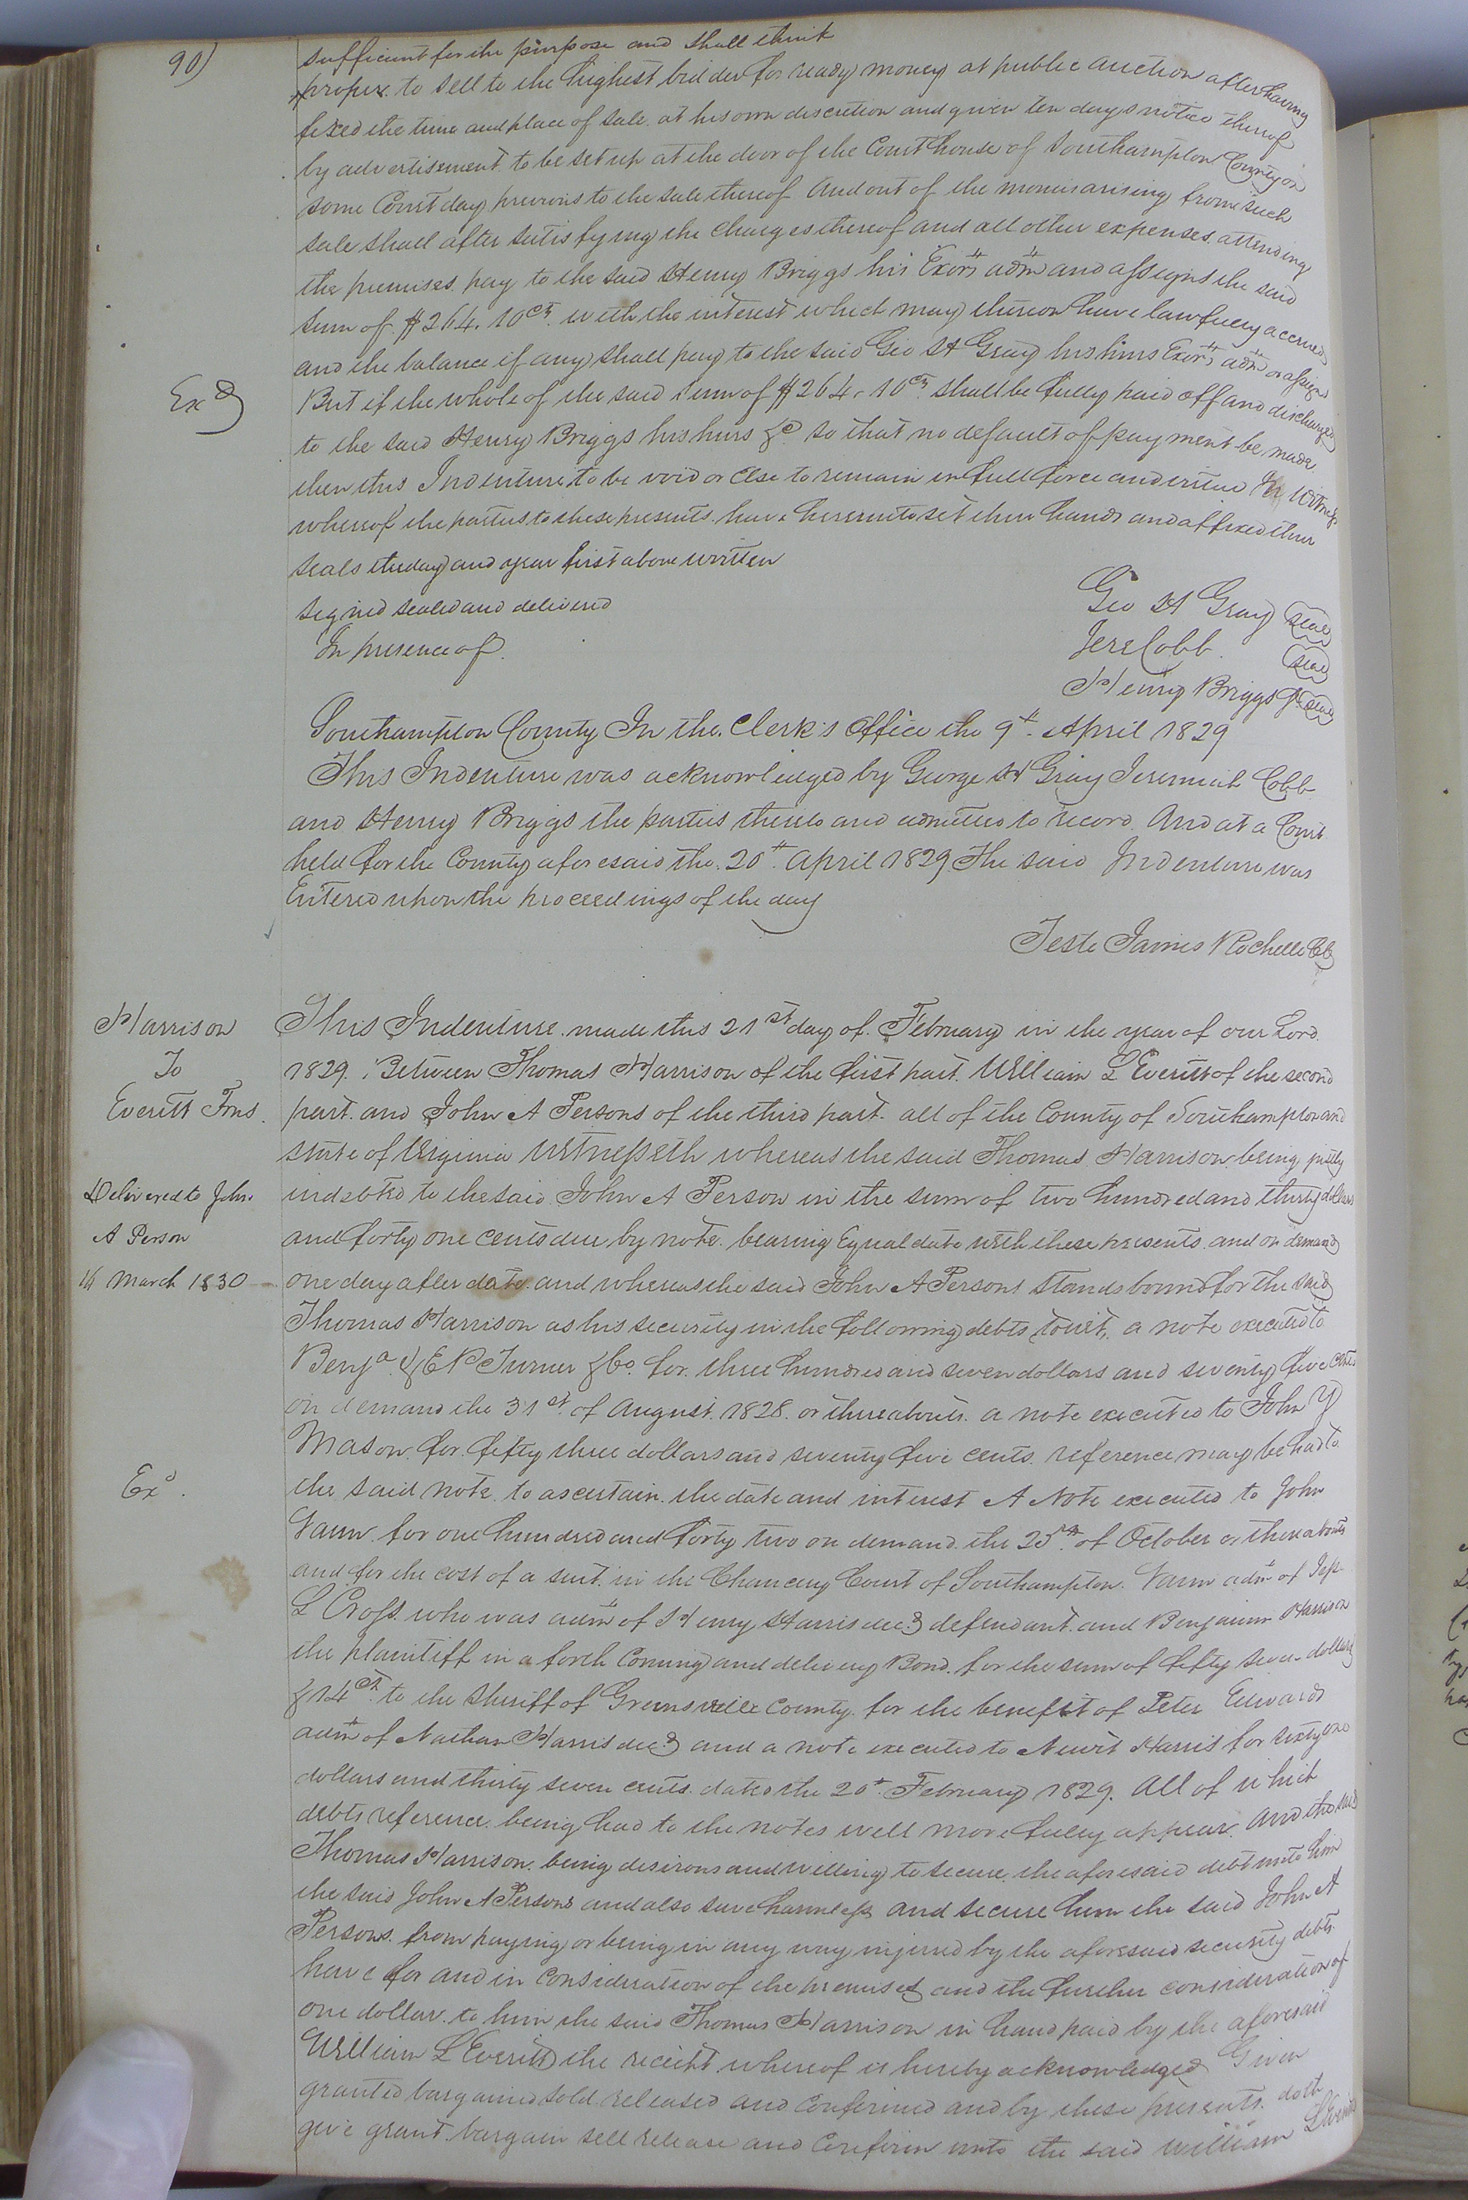 90)
sufficient for the purpose and shall think
proper to sell to the highest bidder for ready money at public auction after having
fixed the time and place of sale at his own discretion and given ten days notice thereof
by advertisement to be set up at the door of the Courthouse of Southampton County on
some Court day previous to the sale thereof And out of the monies arising from such
sale shall after satisfying the charges thereof and all other expenses attending
the premises pay to the said Henry Briggs his Exors adms and assigns the said
sum of $264.10cts with the interest which may thereon have lawfully accrued
and the balance if any shall pay to the said Geo H Gray his heirs Exors adms or assigns
Exd
But if the whole of the said sum of $264.10cts shall be fully paid off and discharged
to the said Henry Briggs his heirs &c so that no default of payment be made
then this Indenture to be void or else to remain in full force and virtue In witness
whereof the parties to these presents have hereunto set their hands and affixed their
seals the day and year first above written
Signed sealed and delivered
In presence of
Geo H Gray seal
Jere Cobb seal
Henry Briggs Jr seal
Southampton County In the Clerk's Office the 9th April 1829
This Indenture was acknowledged by George H Gray Jeremiah Cobb
and Henry Briggs the parties thereto and admitted to record. And at a Court
held for the County aforesaid the 20th April 1829 The said Indenture was
Entered upon the proceedings of the day
Teste James Rochelle Clk
Harrison
To
Everitt Trus.
Delivered to John
A Person
14 March 1830
This Indenture made this 21st day of February in the year of our Lord
1829. Between Thomas Harrison of the first part William L Everitt of the second
part and John A Persons of the third part all of the County of Southampton and
state of Virginia Witnesseth whereas the said Thomas Harrison being justly
indebted to the said John A Person in the sum of two hundred and thirty dollars
and forty one cents due by note bearing Equal date with these presents and on demand
one day after date and whereas the said John A Persons stands bound for the said
Thomas Harrison as his security in the following debts towit, a note executed to
Benja & E P Turner &Co for three hundred and seven dollars and seventy five cents
on demand the 31st of August 1828 or thereabouts a note executed to John Y
Mason for fifty three dollars and seventy five cents reference may be had to
Exd.
the said note to ascertain the date and interest A Note executed to John
Vann for one hundred and forty two on demand the 25th of October or thereabouts
and for the cost of a suit in the Chancery Court of Southampton. Vann adm of
L Cross who was adm of Henry Harris decd defendant and Benjamin Harrison
the plaintiff in a forth Coming and delivery Bond for the sum of fifty seven dollars
& 14cts to the Sheriff of Greensville County for the benefit of Peter Edwards
adm of Nathan Harris decd and a note executed to Newit Harris for sixty one
dollars and thirty seven cents dated the 20th February 1829. All of which
debts reference being had to the notes will more fully appear And the said
Thomas Harrison being desirous and willing to secure the aforesaid debt unto him
the said John A Persons and also save harmless and secure him the said John A
Persons from paying or being in any way injured by the aforesaid security debts
have for and in consideration of the premises and the further consideration of
one dollar to him the said Thomas Harrison in hand paid by the aforesaid
William L Everitt the receipt whereof is hereby acknowledged Given
granted bargained sold released and confirmed and by these presents doth
give grant bargain sell release and confirm unto the said William L Everitt